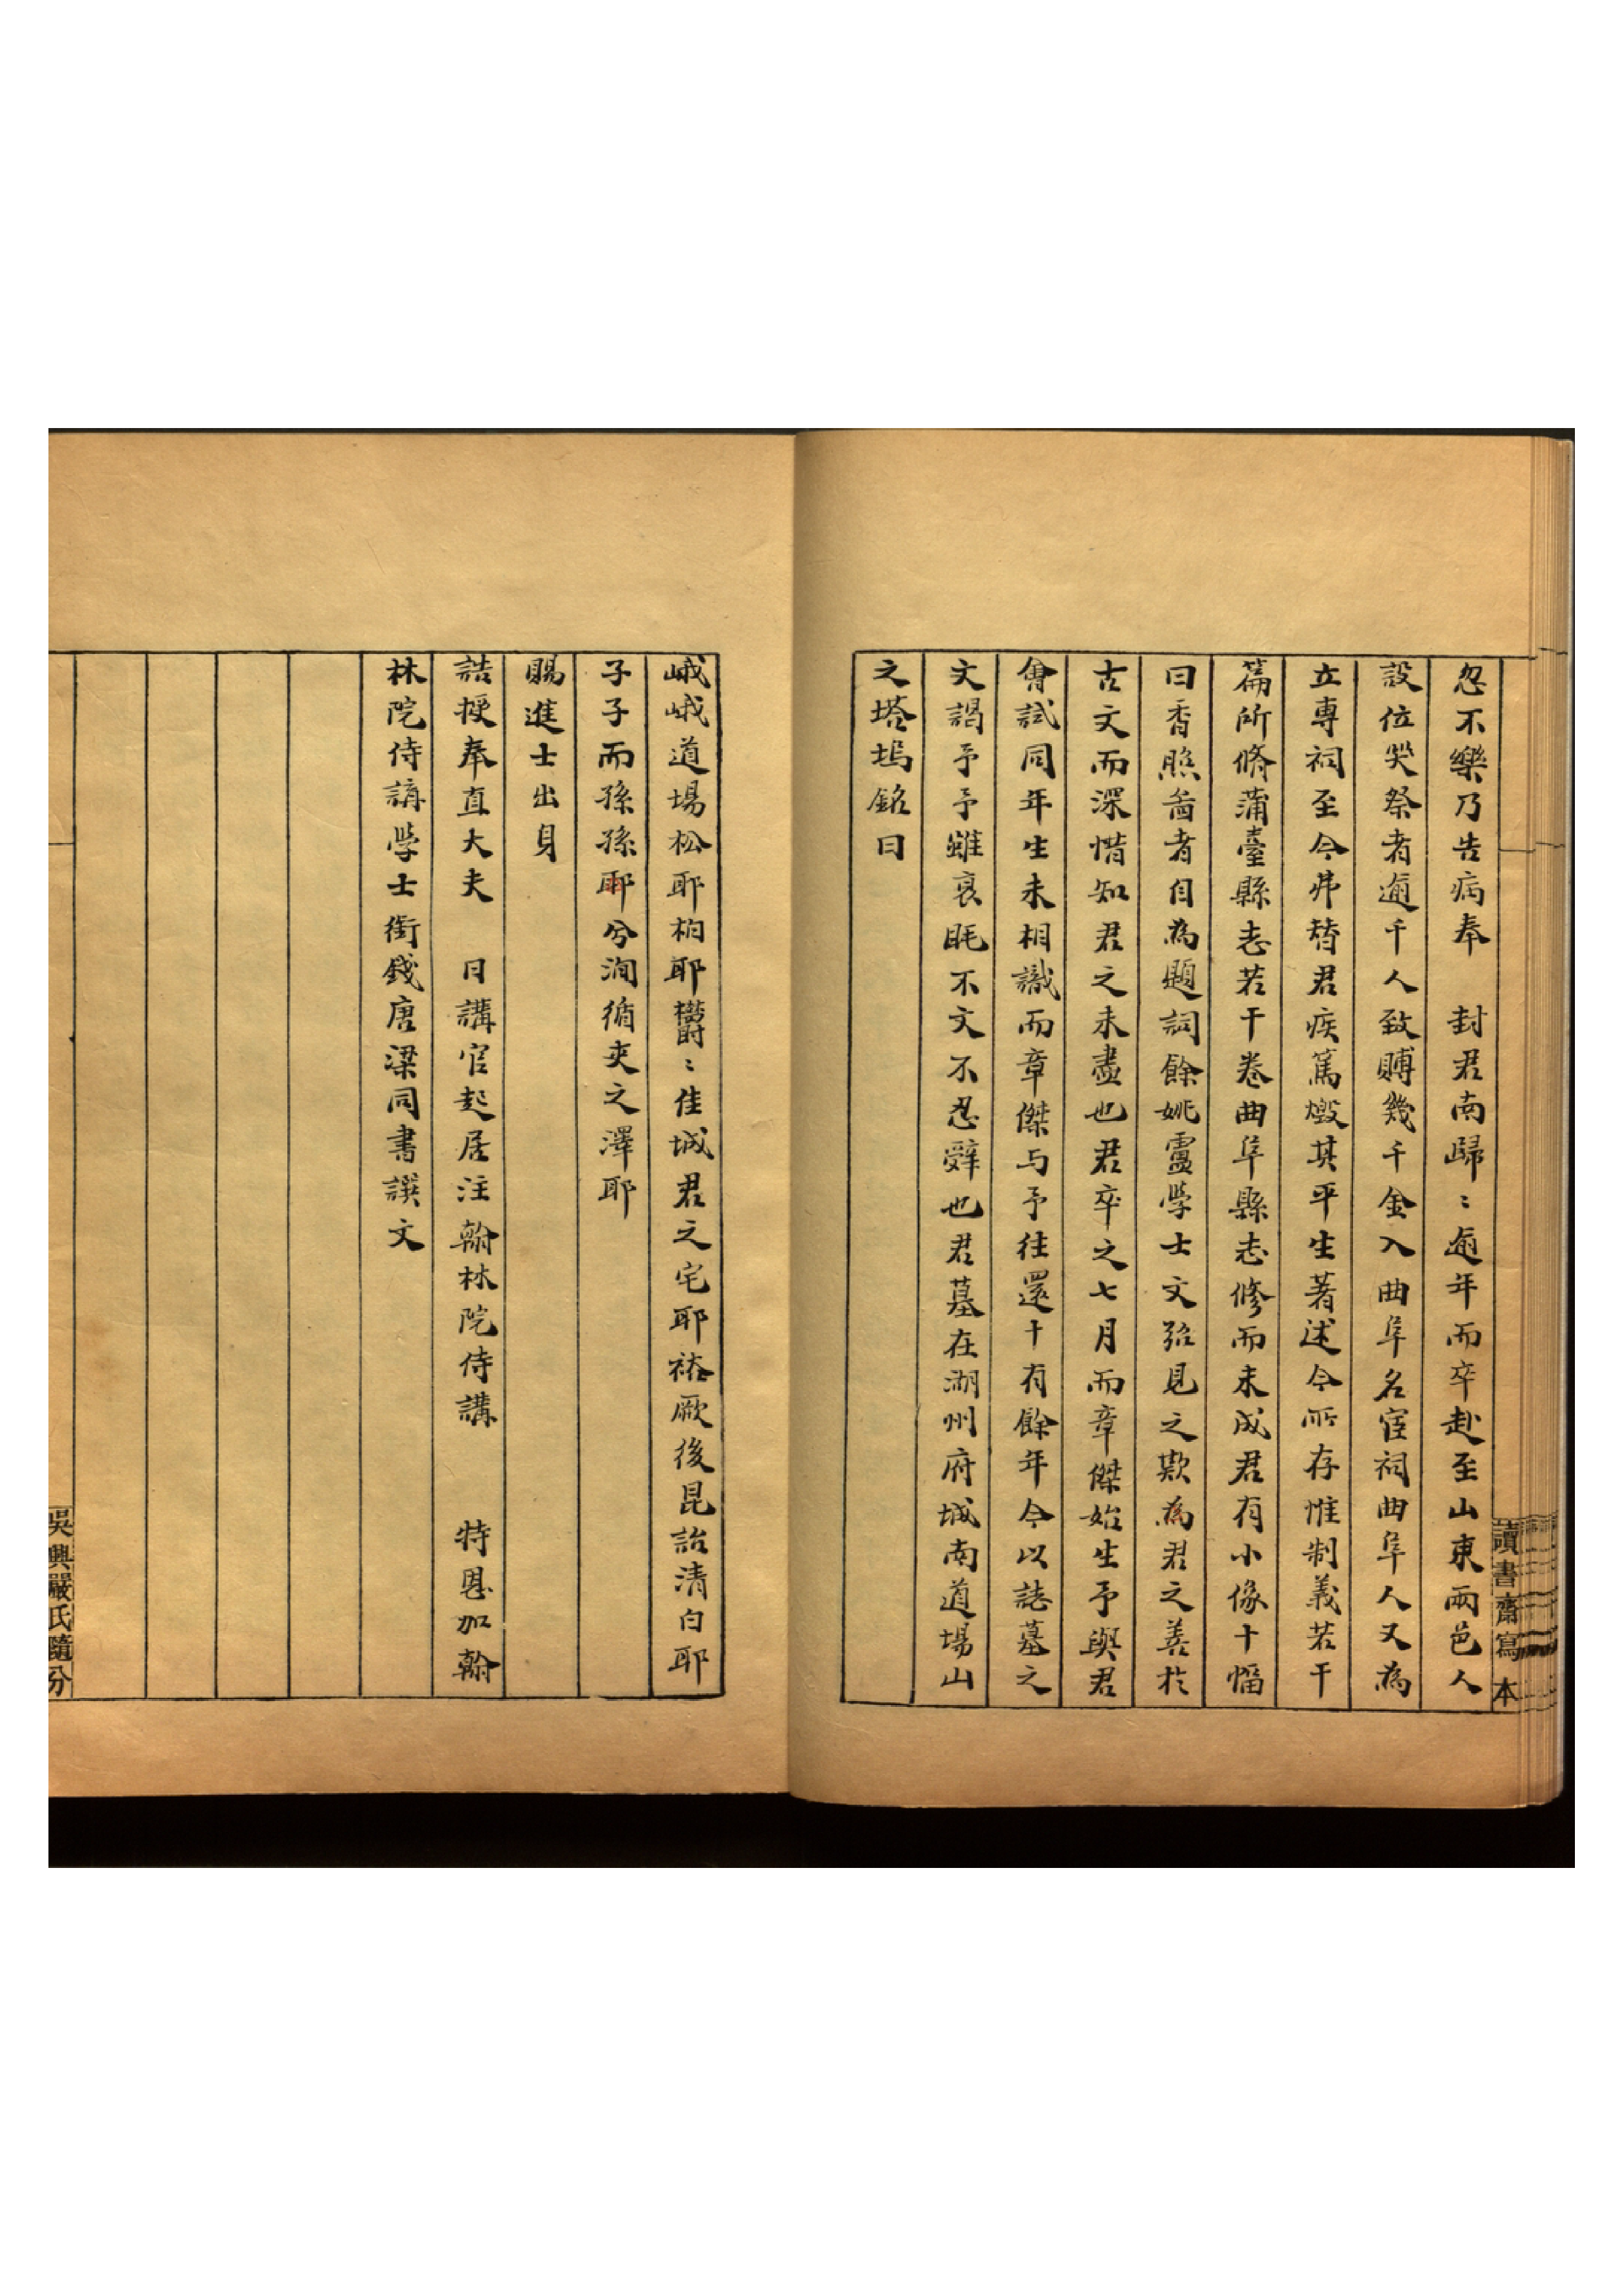 讀書齋寫本
忽不樂乃告病奉　封君南歸〻逾年而卒赴至山東兩邑人
設位哭祭者逾千人致賻幾千金入曲阜名宦祠曲阜人又為
立專祠至今弗替君疾篤燬其平生著述今所存惟制義若干
篇所脩蒲臺縣志若干卷曲阜縣志修而未成君有小像十幅
曰香照啚者自為題詞餘姚盧學士文弨見之歎為君之善於
古文而深惜知君之未盡也君卒之七月而章傑始生予與君
會試同年生未相識而章傑与予往還十有餘年今以誌墓之
文謁予予雖衰眊不文不忍辭也君墓在湖州府城南道場山
之塔塢銘曰
峨峨道場松耶柏耶欝〻佳城君之宅耶裕厥後昆詒清白耶
子子而孫孫耶兮洵循吏之澤耶
賜進士出身
誥授奉直大夫　日講官起居注翰林院侍講　特恩加翰
林院侍講學士銜錢唐梁同書譔文
吳興嚴氏隨分